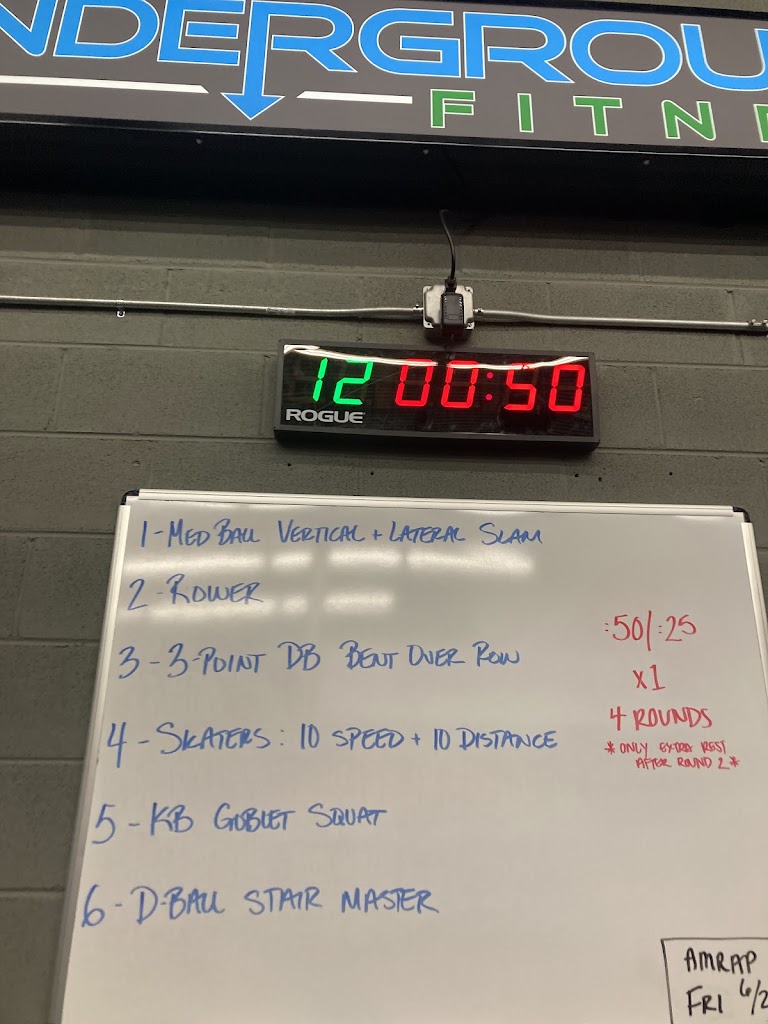 NDERGROU
FITN
12 00:50
ROGUE
1-MED BALL VERTICAL + LATERAL SLAM
2-ROWER
3-3-POINT DB BENT OVER ROW
4-SKATERS: 10 SPEED + 10 DISTANCE
5-KB GOBLET SQUAT
6-D-BALL STAIR MASTER
:50/:25
x1
4 ROUNDS
*ONLY EXTRA REST
AFTER ROUND 2*
AMRAP
FRI 6/2